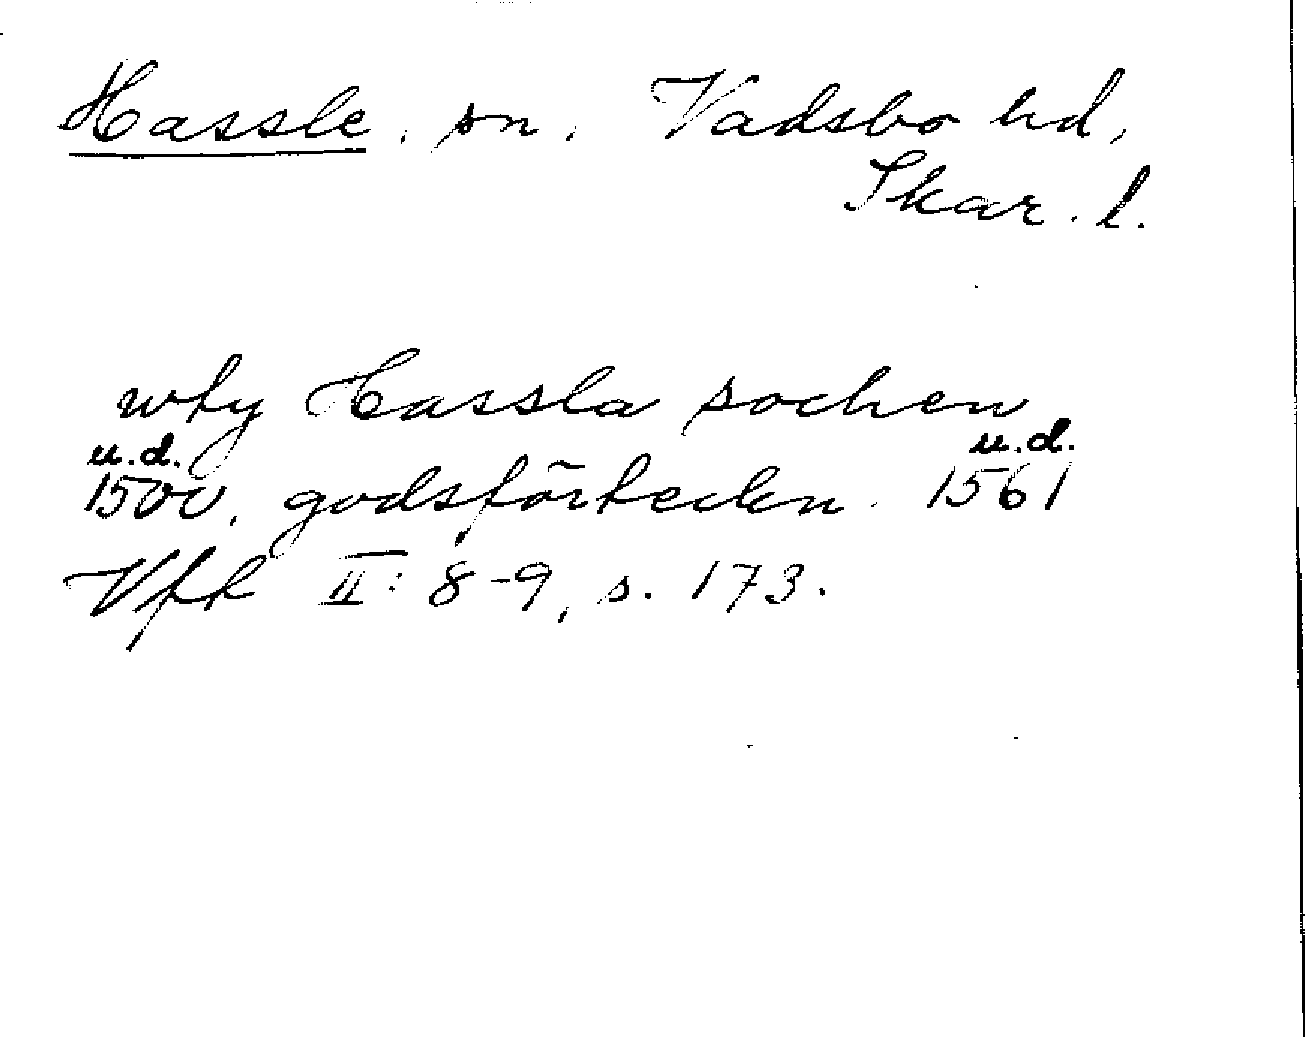 Hassle, sn, Vadsbo hd,
Skar. l.
wty Hassla sochen
u.d. u.d.
1500, godsförteckn. 1561
Vfk II: 8-9, s. 173.